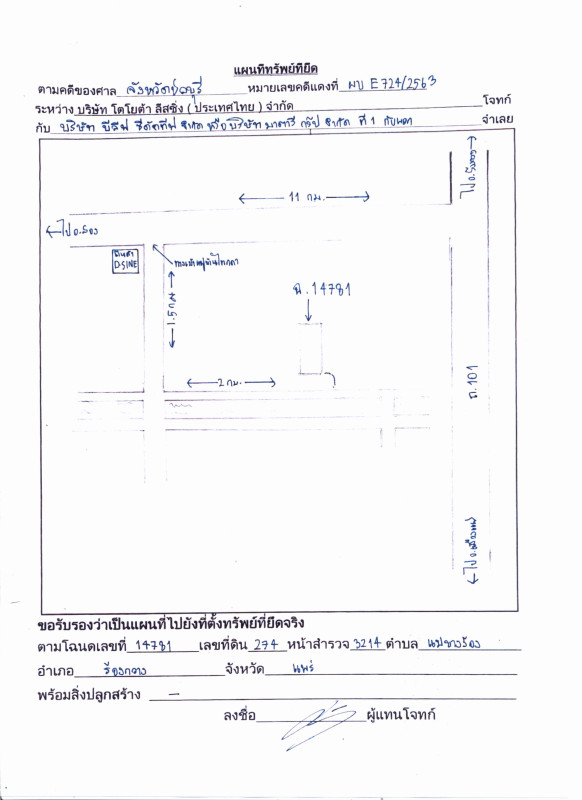 แผนที่ทรัพย์ที่ยึด
ตามคดีของศาล จังหวัดชลบุรี หมายเลขคดีแดงที่ ผบ E724/2563
ระหว่าง บริษัท โตโยต้า ลีสซิ่ง ( ประเทศไทย ) จำกัด โจทก์
กับ บริษัท จำกัด หรือ บริษัท จำกัด ที่ 1 กับพวก จำเลย
11 กม.
ไป อ.สอง
D-SINE
1.5 กม.
ฉ.14781
2 กม.
ถ.101
ไป อ.เมืองแพร่
ขอรับรองว่าเป็นแผนที่ไปยังที่ตั้งทรัพย์ที่ยึดจริง
ตามโฉนดเลขที่ 14781 เลขที่ดิน 274 หน้าสำรวจ 3214 ตำบล แม่ยางร้อง
อำเภอ ร้องกวาง จังหวัด แพร่
พร้อมสิ่งปลูกสร้าง —
ลงชื่อ ผู้แทนโจทก์